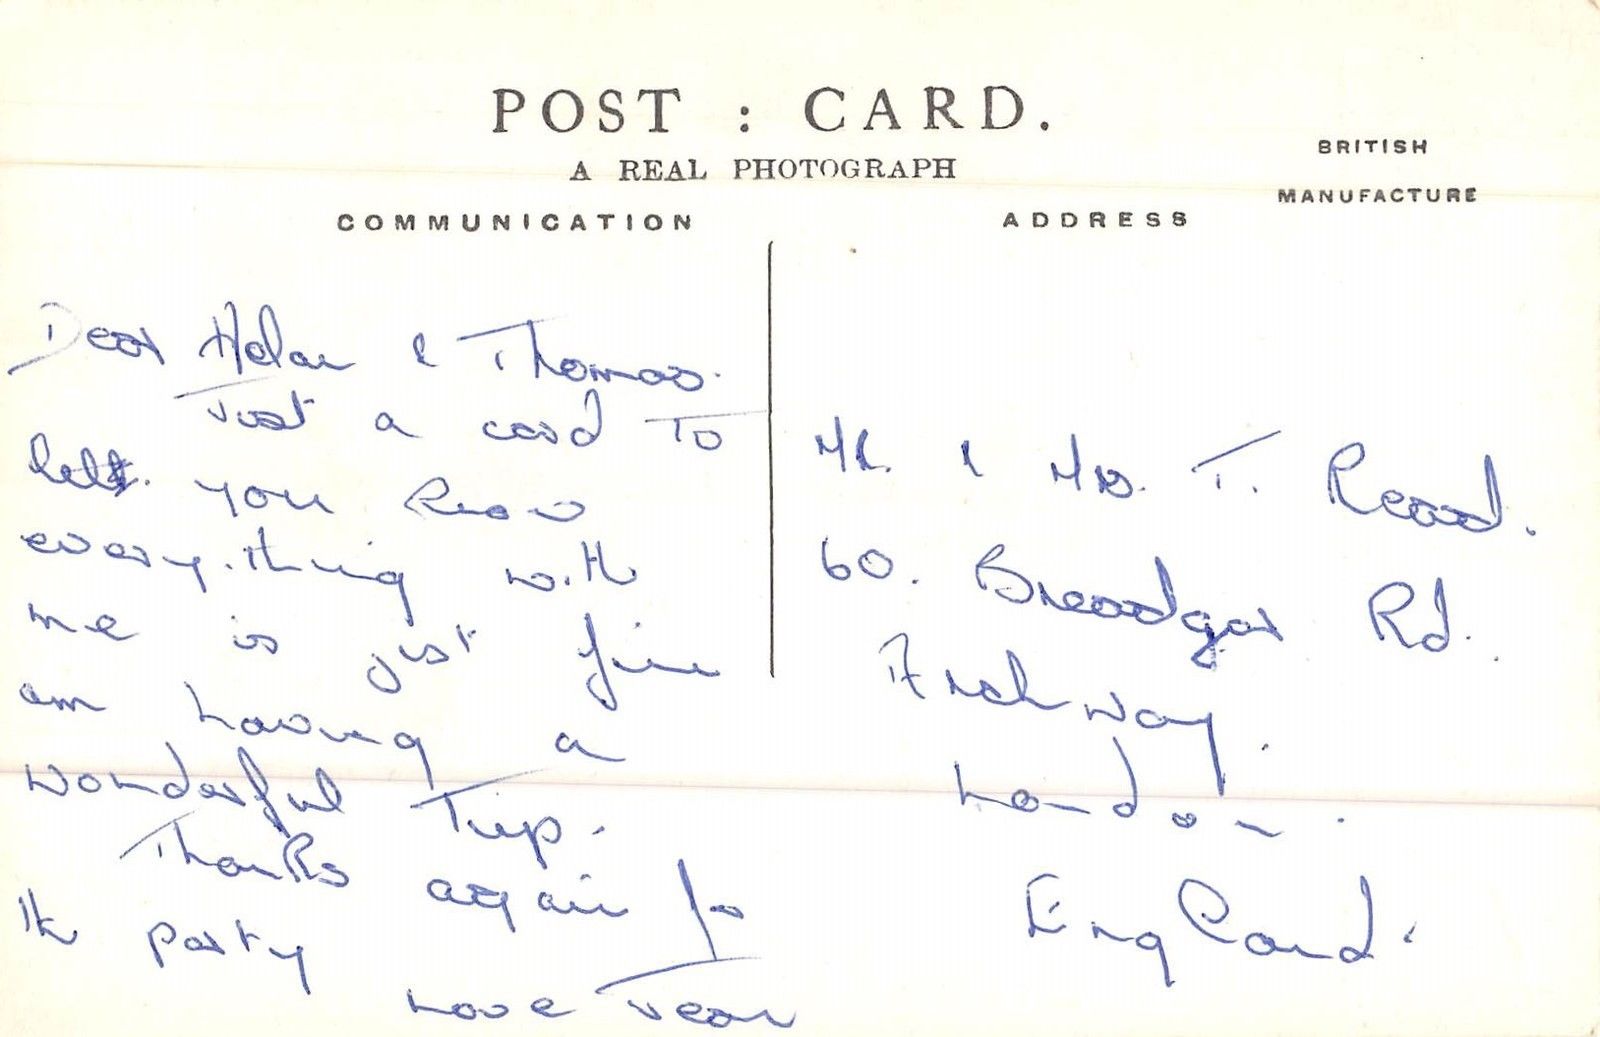 POST : CARD.
A REAL PHOTOGRAPH
BRITISH
MANUFACTURE
COMMUNICATION
ADDRESS
Dear Helen & Thomas.
Just a card to
let you know
every.thing with
me is just fine
am having a
wonderful Trip.
Thanks again for
the party
Love Jean
Mr. & Mrs. T. Read.
60. Breadgar Rd.
Archway.
London.
England.